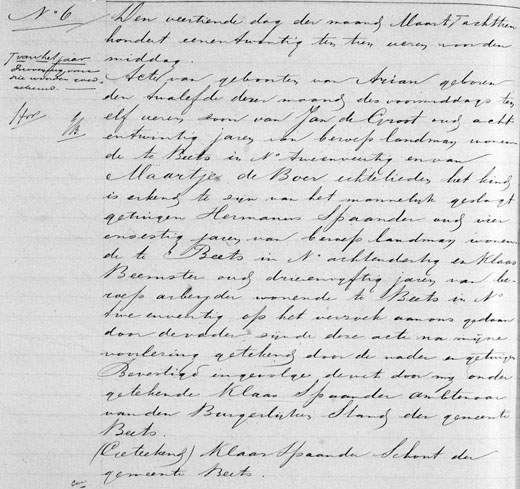 No 6
Den veertiende dag der maand Maart Tachttien
hondert eenentwintig ten tien uren voorden
middag.
Acte van geboorten van Arian geboren
den twalefde dezer maand des voormiddags ten
elf uren, zoon van Jan de Groot oud acht
entwintig jaren van beroep landman wonen
de te Beets in No tweenveertig en van
Maartje de Boer echtelieden het kind
is erkend te zijn van het mannelijk geslagt
getuigen Hermanus Spaander oud vier
enzestig jaren van beroep landman wonen
de te Beets in No achtendertig en Klaas
Beemster oud drieenvyftig jaren van be-
roep arbeyder wonende te Beets in No
twe enveertig op het verzoek aan ons gedaan
door de vader zijnde deze acte na mijne
voorlezing getekend door de vader en getuigen
Bevestigd ingevolge de wet door my onder
getekende Klaas Spaander ambtenaar
van den Burgerlijken Stand der gemeente
Beets.
(Geteekend) Klaas Spaander Schout der
gemeente Beets.
van het jaar